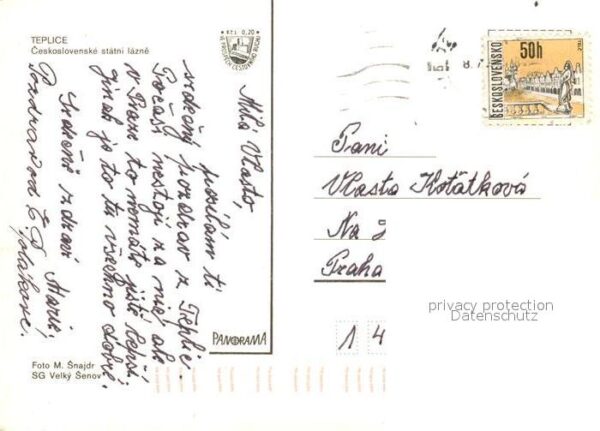 TEPLICE
Československé státní lázně
Kčs 0,20
Milá Vlasto,
posílám ti
srdečný pozdrav z Teplic
Počasí nestojí za nic ale
v Praze to nemáte jistě lepší
jinak je to tu všechno dobré.
Srdečně zdraví Marie,
Pozdrav od
Foto M. Šnajdr
SG Velký Šenov
PANORAMA
ČESKOSLOVENSKO
50h
TELČ
Paní
Vlasta Koťátková
Na
Praha
1 4
privacy protection
Datenschutz